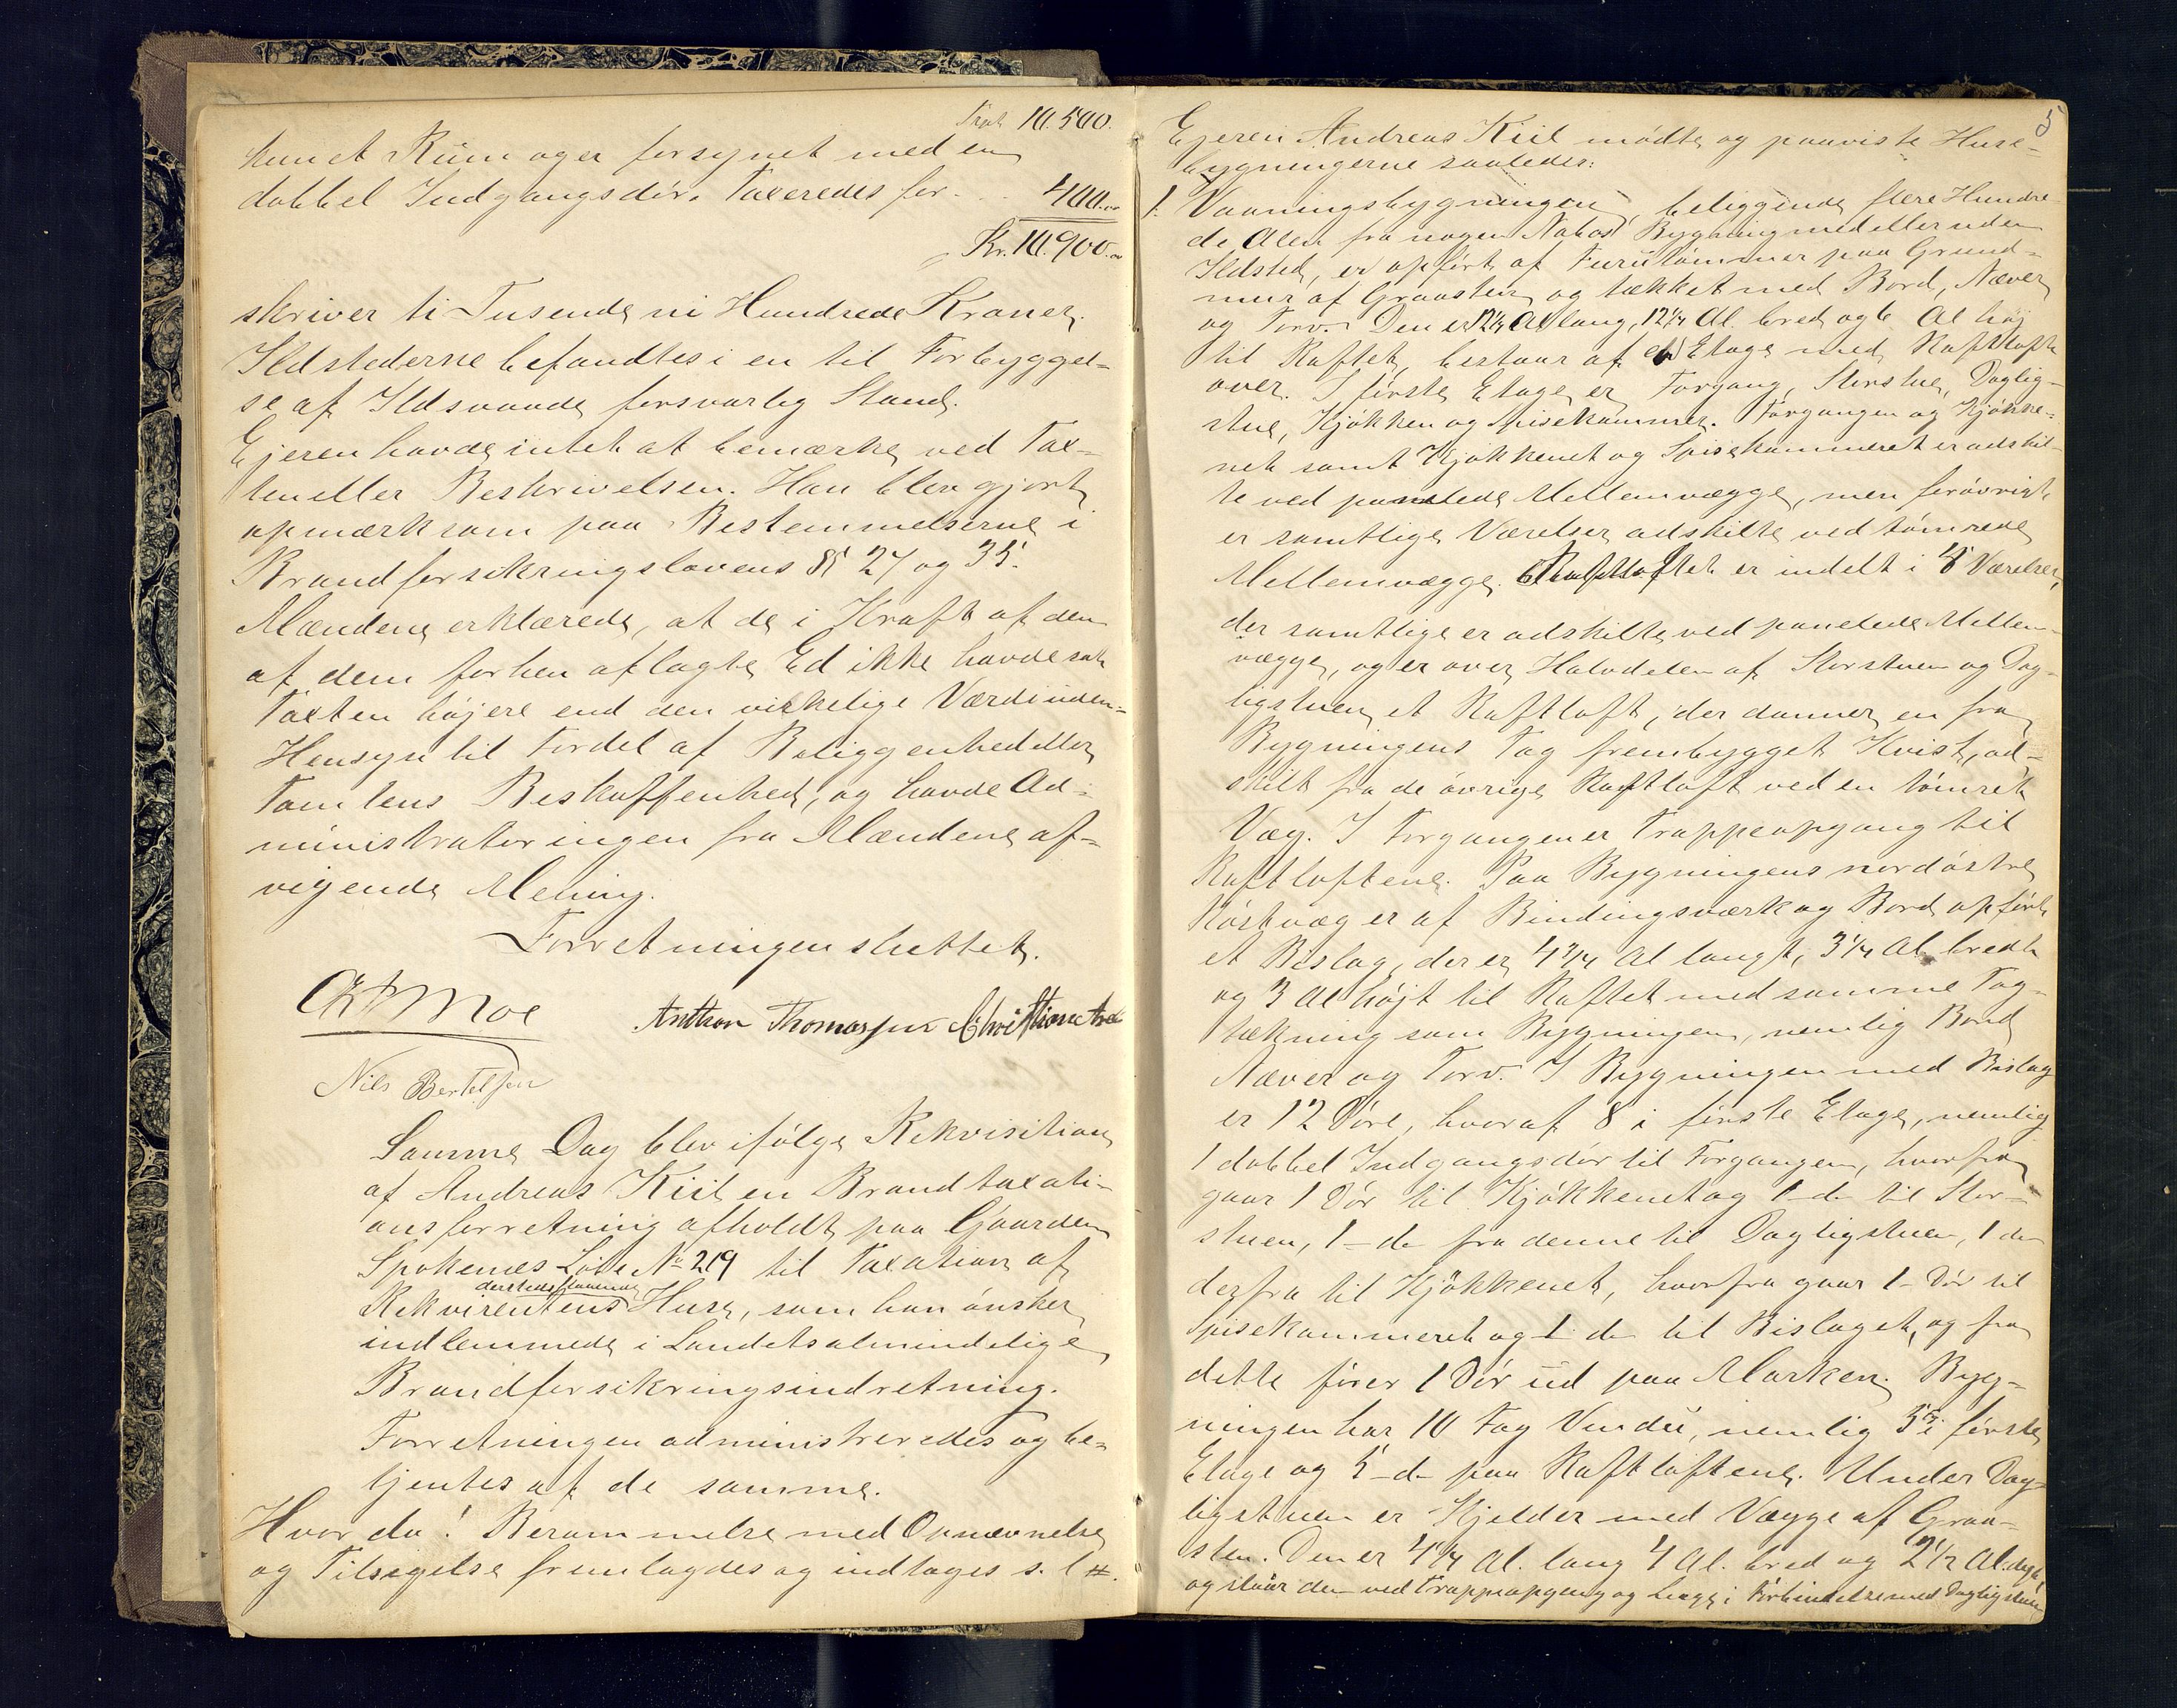 Trsp. 10.500.
kun et Rum og er forsynet med en
dobbel Indgangsdør. Taxeredes for - . . 400..
Kr. 10.900...
skriver ti Tusende ni Hundrede Kroner.
Ildstederne befandtes i en til Forbyggel-
se af Ildsvaade forsvarlig Stand.
Ejeren havde intet at bemærke ved Tax-
ten eller Beskrivelsen. Han blev gjort
opmærksom paa Bestemmelserne i
Brandforsikringslovens §§ 27 og 35.
Mændene erklærede, at de i Kraft af den
af dem forhen aflagte Ed ikke havde sat
Taxten højere end den virkelige Værdi uden
Hensyn til Fordel af Beliggenhed eller
Tomtens Beskaffenhed, og havde Ad-
ministrator ingen fra Mændene af-
vigende Mening.
Forretningen sluttet.
Moe Anthon Thomassen
Nils Bertelsen
Samme Dag blev ifølge Rekvisition
af Andreas Kiil en Brandtaxati-
onsforretning afholdt paa Gaarden
Spokenes Løbe No 219 til Taxation af
Rekvirentens Huse, som han ønsker
indlemmede i Landets almindelige
Brandforsikringsindretning.
Forretningen administreredes og be-
tjentes af de samme.
Hvor da! Berammelse med Opnævnelse
og Tilsigelse fremlagdes og indtages s. l #.
5
Ejeren Andreas Kiil mødte og paaviste Huse-
bygningerne saaledes:
1. Vaaningsbygningen, beliggende flere Hundre-
de Alen fra nogen Nabos Bygning med eller uden
Ildsted, er opført af Furutømmer paa Grund-
mur af Graasten og tækket med Bord, Næver
og Torv. Den er 12¼ Al lang, 12¼ Al. bred og 6 Al høj
til Raftet, bestaar af Etage med Raftloft
over. I første Etage er Forgang, Storstue, Daglig-
stue, Kjøkken og Spisekammer. Forgangen og Kjøkke-
net samt Kjøkkenet og Spisekammeret er adskil-
te ved panelede Mellemvægge, men forøvrigt
er samtlige Værelser adskilte ved tømrede
Mellemvægge. Raftloftet er indelt i Værelser,
der samtlige er adskilte ved panelede Mellem-
vægge, og er over Halvdelen af Storstuen og Dag-
ligstuen et Raftloft, der danner en fra
Bygningens Tag frembygget Kvist, ad-
skilt fra de øvrige Raftloft ved en tømret
Væg. I Forgangen er Trappeopgang til
Raftloftene. Paa Bygningens nordøstre
Røstvæg er af Bindingsværk og Bord opført
et Bislag, der er 4¾ Al langt, 3¼ Al. bredt
og 3 Al højt til Raftet med samme Tag-
tækning som Bygningen, nemlig Bord
Næver og Torv. I Bygningen med Bislag
er 12 Døre, hvoraf 8 i første Etage, nemlig
1 dobbel Indgangsdør til Forgangen, hvorfra
gaar 1 Dør til Kjøkkenet og 1 do til Stor-
stuen, 1 - do fra denne til Dagligstuen, 1 do
derfra til Kjøkkenet, hvorfra gaar 1 - Dør til
Spisekammeret og 1 do til Bislaget, og fra
dette fører 1 Dør ud paa Marken. Byg-
ningen har 10 Fag Vindu, nemlig 5 i første
Etage og 5 - do paa Raftloftene. Under Dag-
ligstuen er Kjelder med Vægge af Graa-
sten. Den er 4¼ Al. lang 4 Al. bred og 2½ Al. dyb
og staar den ved Trappeopgang og Luge i Forbindelse med Dagligstuen